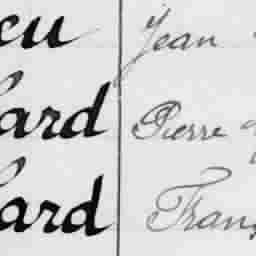 eu Jean
ard Pierre
ard Frans